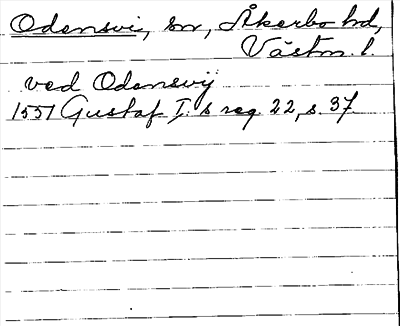 Odensvi, sn, Åkerbo hd,
Västm. l.
ved Odensvij
1551 Gustaf I:s reg. 22, s. 37